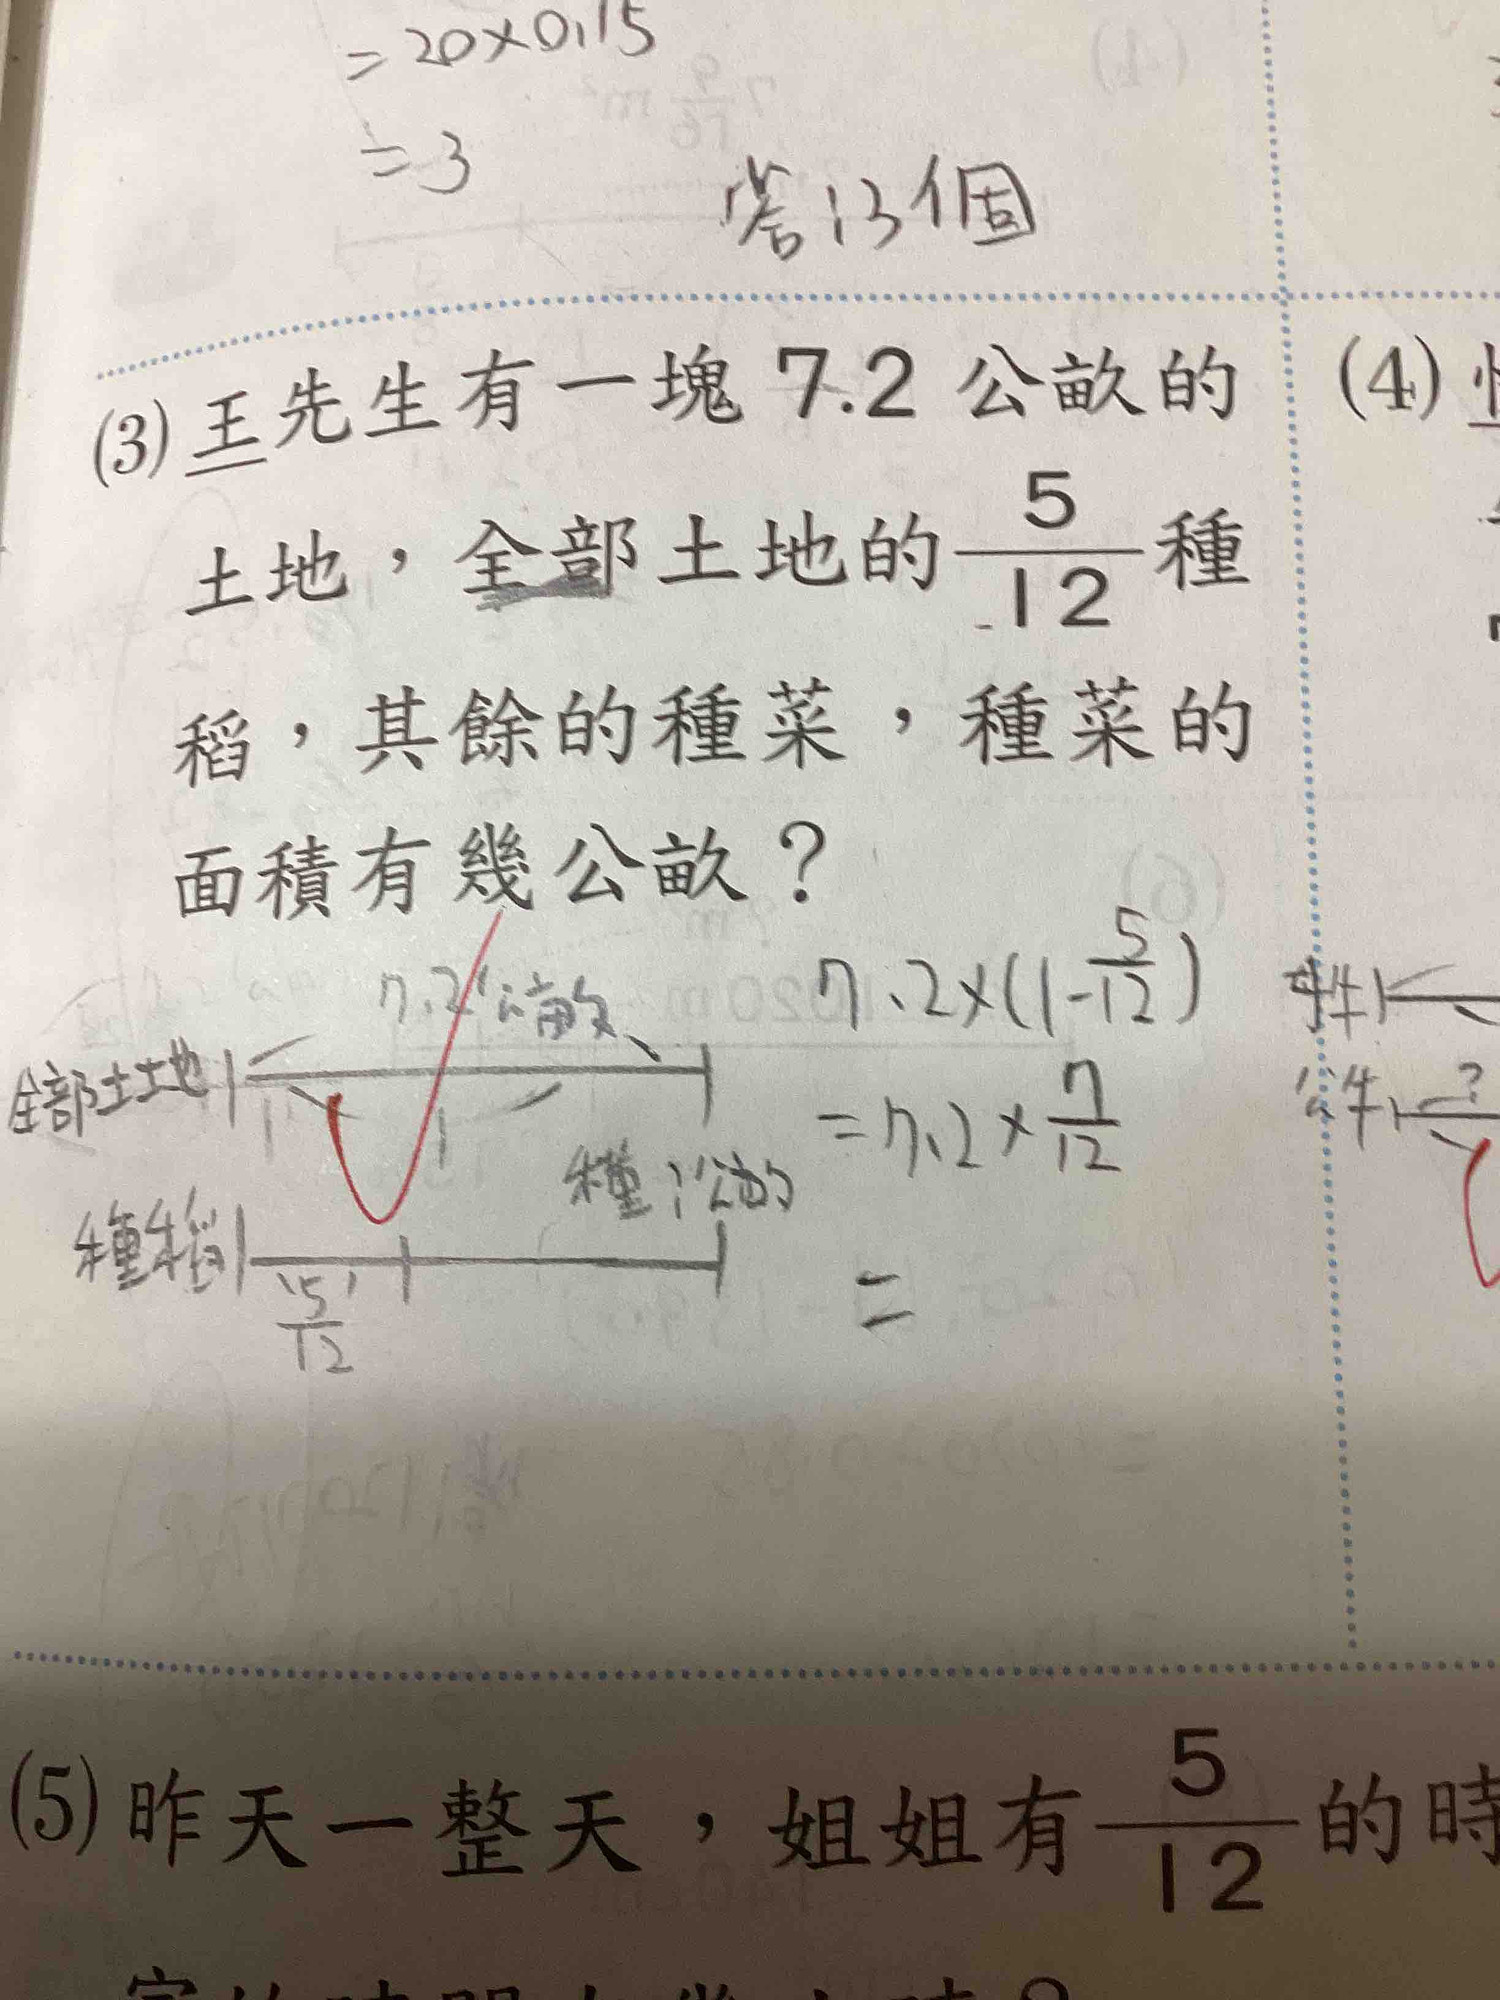 =20×0.15
=3
答:3個
(3)王先生有一塊 7.2 公畝的
土地,全部土地的 5/12 種
稻,其餘的種菜,種菜的
面積有幾公畝?
7.2公畝
全部土地
種稻
5/12
7.2×(1-5/12)
=7.2×7/12
=
(4)
公牛
?
(5)昨天一整天,姐姐有 5/12 的時